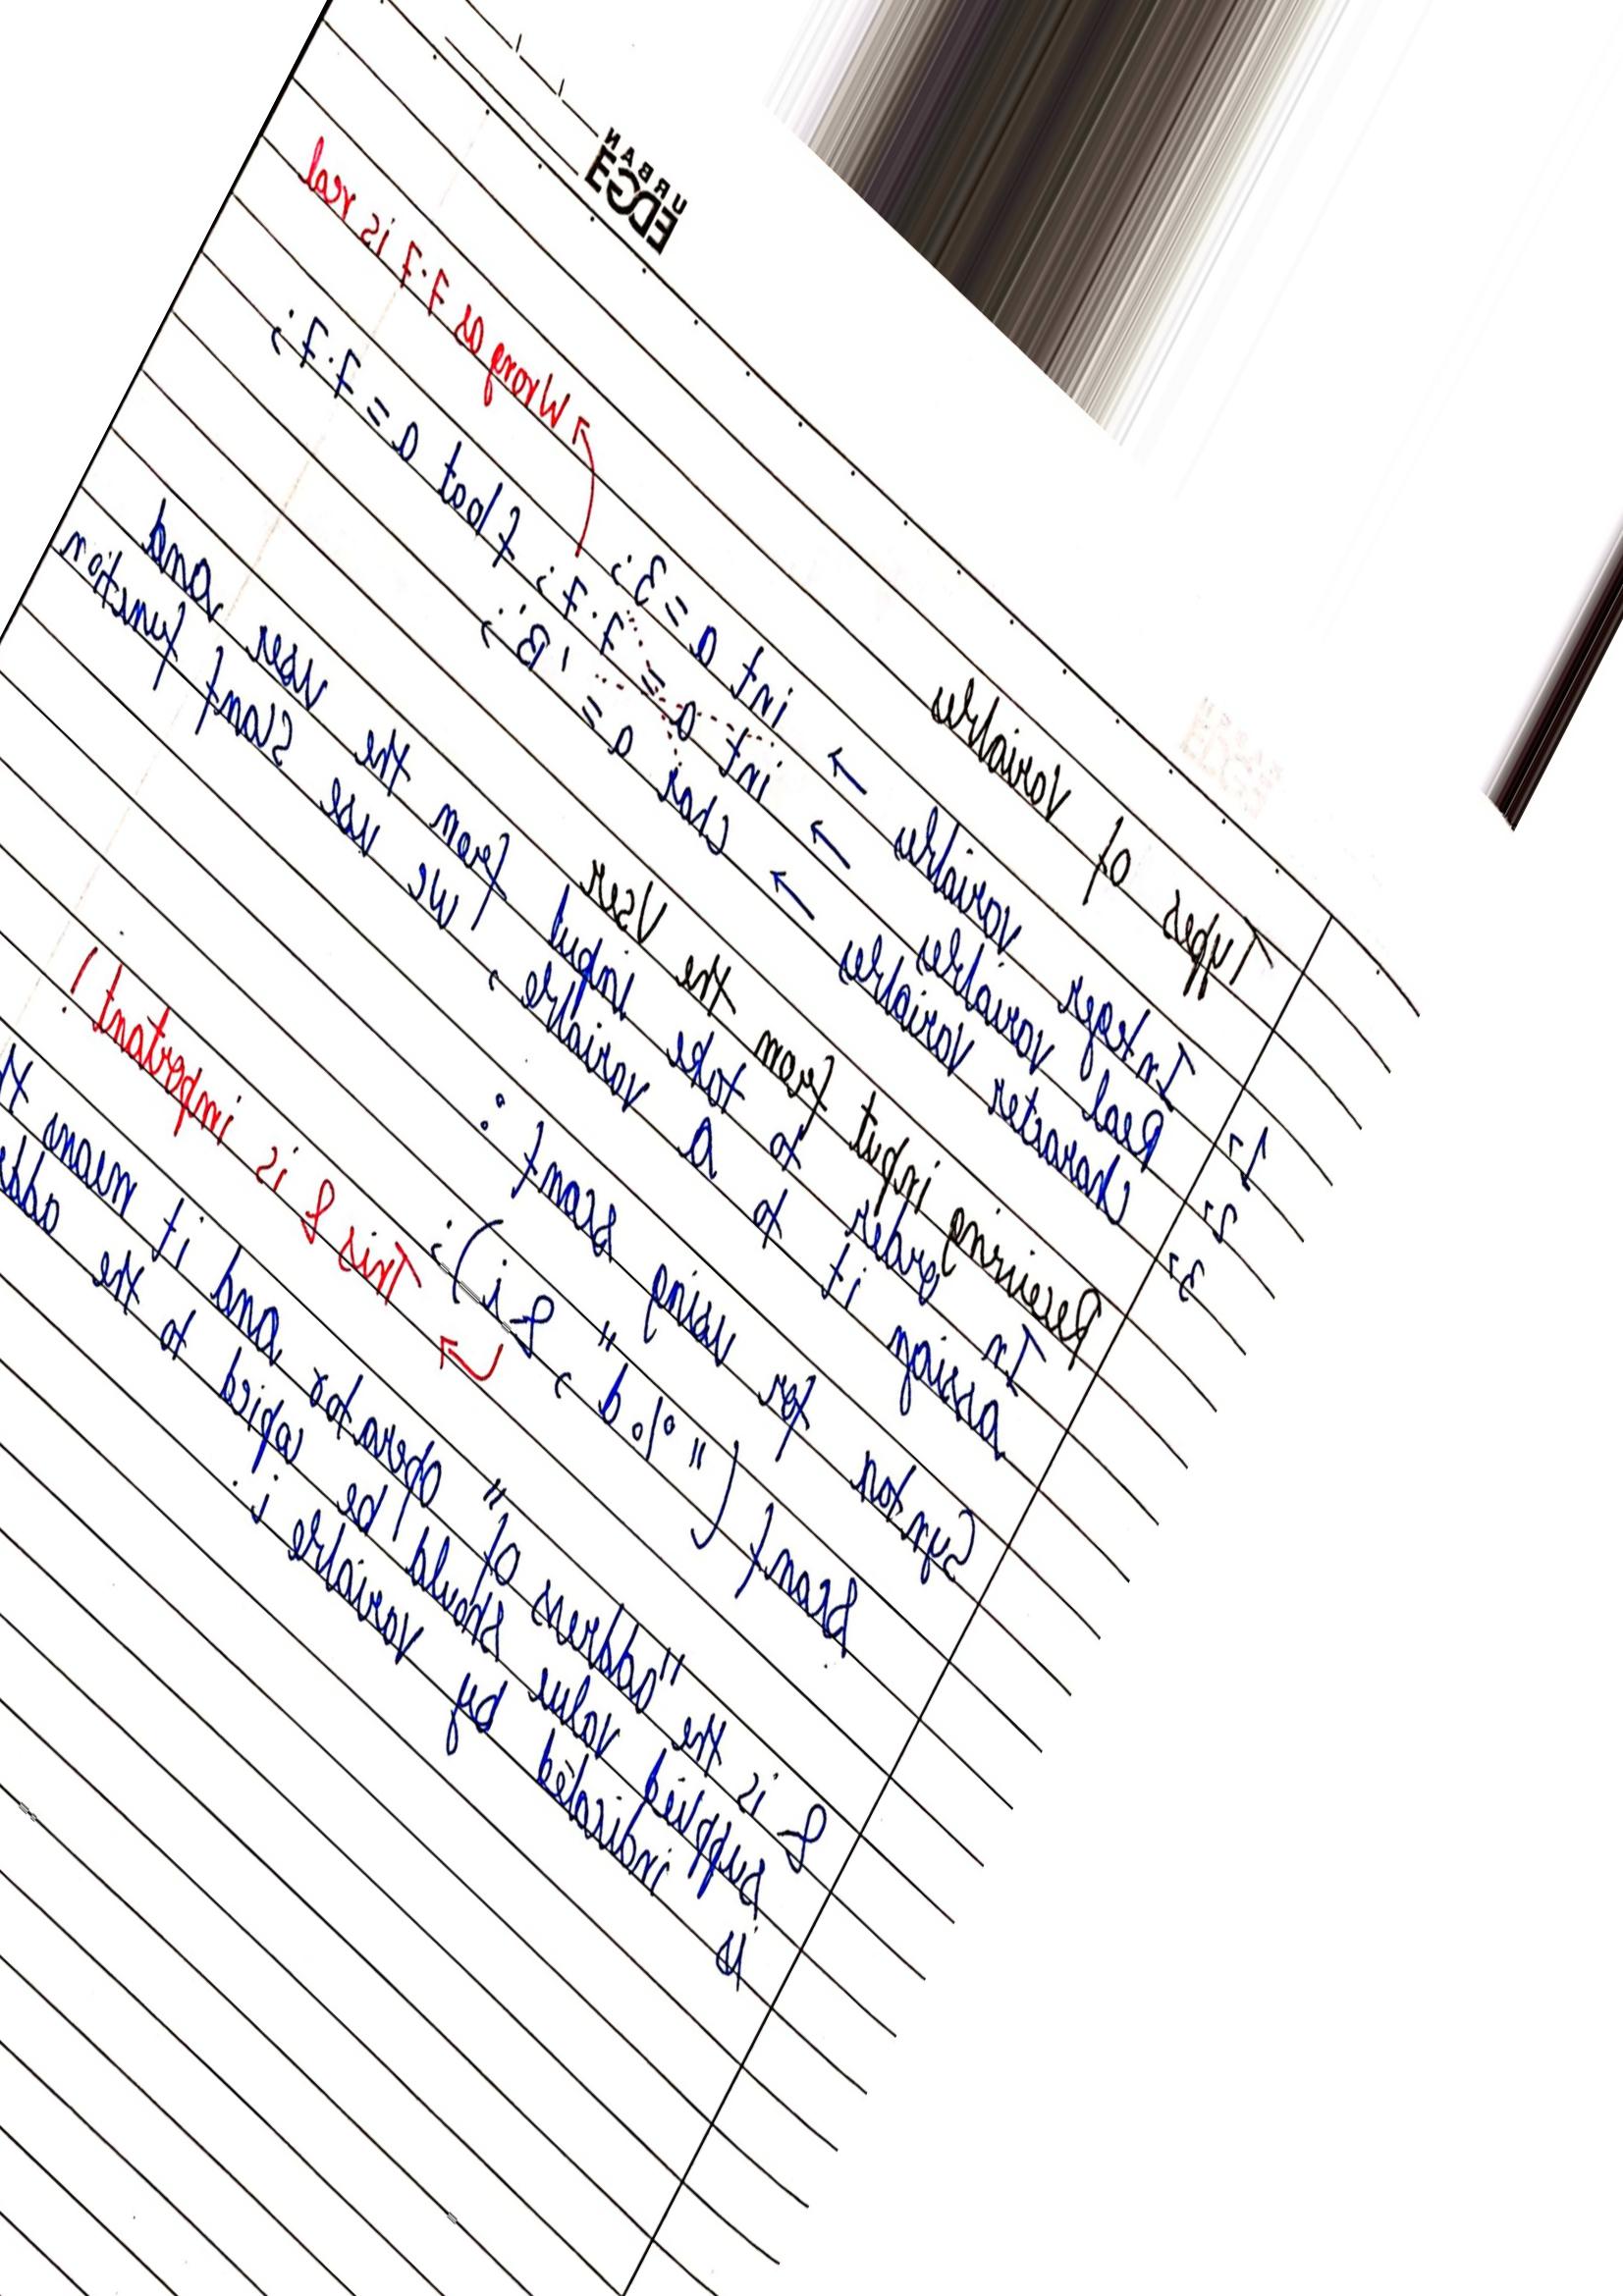 URBAN
EDGE
Types of Variables
1→ Integer variables → int a = 3;
Wrong as 7.7 is real
2→ Real variables → int a = 7.7; float a = 7.7;
3→ Character Variables → char a = 'B';
Receiving input from the User
In order to take input from the user and
assign it to a variable, we use scanf function
Syntax for using scanf :
scanf ( "%d" , &i );
This & is important!
& is the "address of" operator and it means
supplied value should be copied to the
is indicated by variable i.